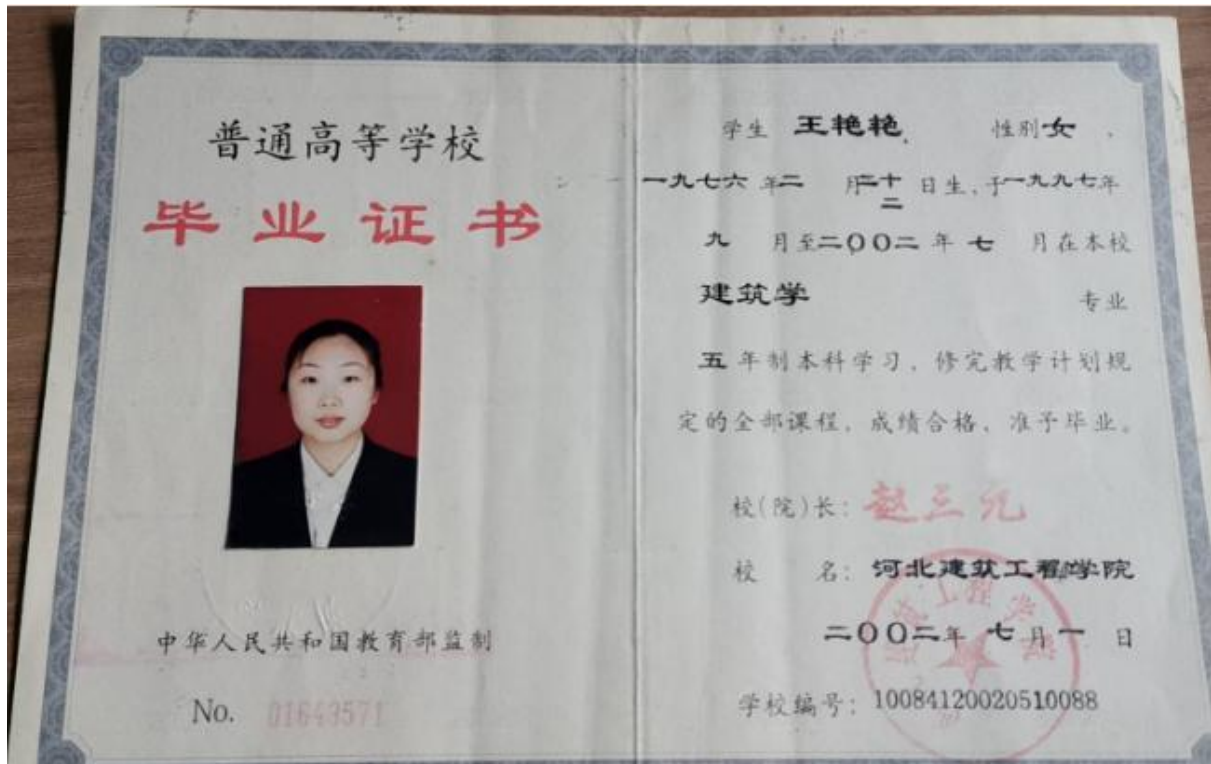 普通高等学校
毕业证书
中华人民共和国教育部监制
No. 01643571
学生 王艳艳, 性别 女 ,
一九七六 年 二 月 二十二 日生, 于 一九九七 年
九 月至 二〇〇二 年 七 月在本校
建筑学 专业
五 年制本科学习, 修完教学计划规
定的全部课程, 成绩合格, 准予毕业。
校(院)长: 赵三元
校 名: 河北建筑工程学院
二〇〇二年 七 月 一 日
学校编号: 10084120020510088